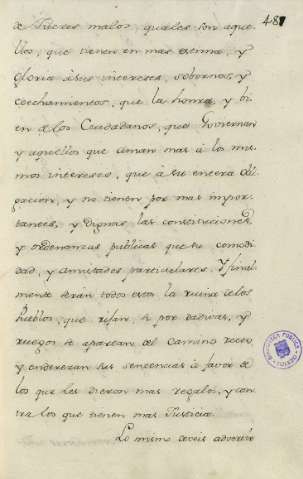 487
de Jueces malos, quales son aque
llos, que tienen en mas estima, y
gloria à sus intereses, sobornos, y
coechamientos, que la honra, y bi
en de los Ciudadanos, que Goviernan
y aquellos que aman mas à los mis
mos intereses, que à su entera obli
gacion, y no tienen por mas impor
tantes, y dignas las constituciones
y ordenanzas publicas que su comodi
dad, y amistades particulares. Y final
mente seràn todos estos la ruina de los
Pueblos, que rifan, ò por dadivas, y
ruegos se apartan del camino recto,
y enderezan sus sentencias à favor de
los que les dieron mas regalos, y con
tra los que tienen mas Justicia.
Lo mismo deveis advertir
BIBLIOTECA PUBLICA
TOLEDO